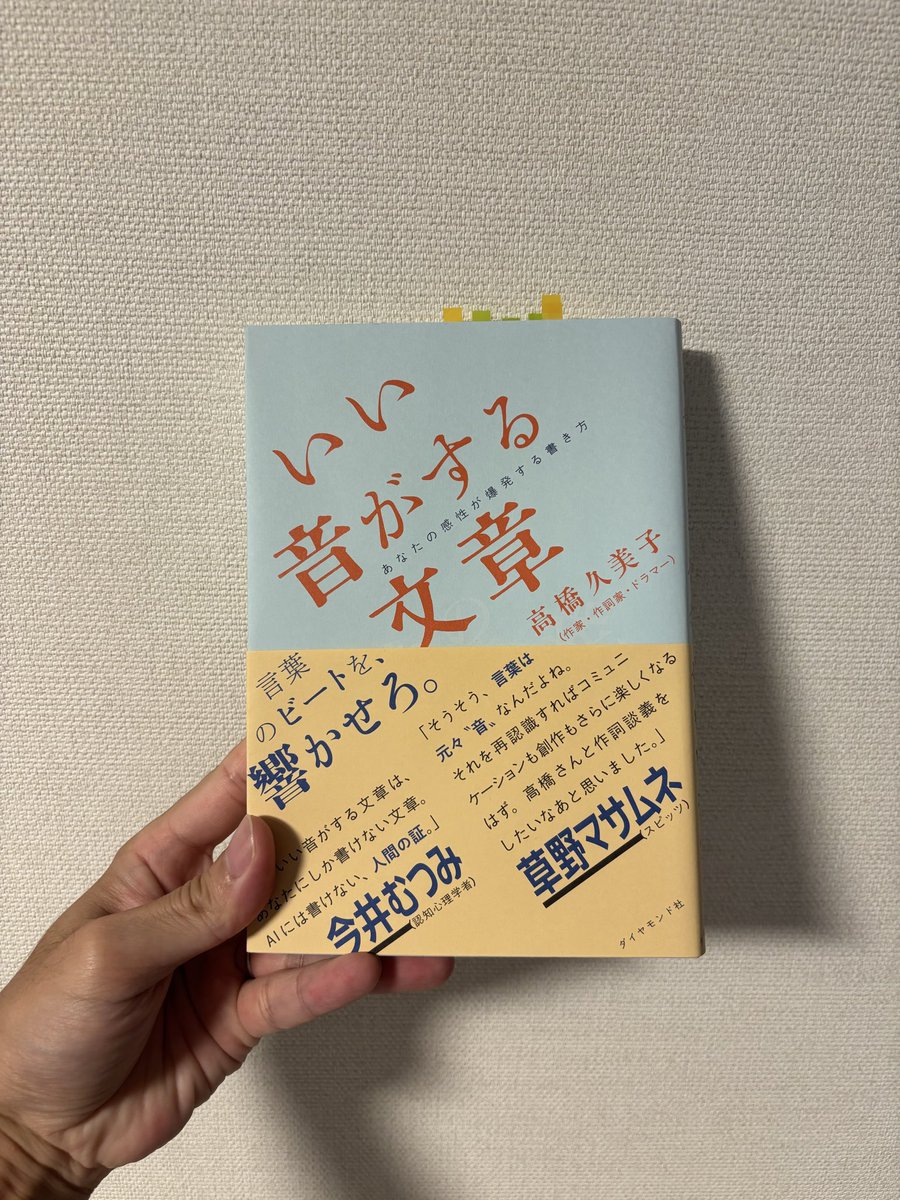 いい
音がする
文章
あなたの感性が爆発する書き方
高橋久美子
(作家・作詞家・ドラマー)
言葉
のビートを、
響かせろ。
「そうそう、言葉は
元々〝音〟なんだよね。
それを再認識すればコミュニ
ケーションも創作もさらに楽しくなる
はず。高橋さんと作詞談義を
したいなあと思いました。」
草野マサムネ
(スピッツ)
いい音がする文章は、
あなたにしか書けない文章。
AIには書けない、人間の証。」
今井むつみ
(認知心理学者)
ダイヤモンド社